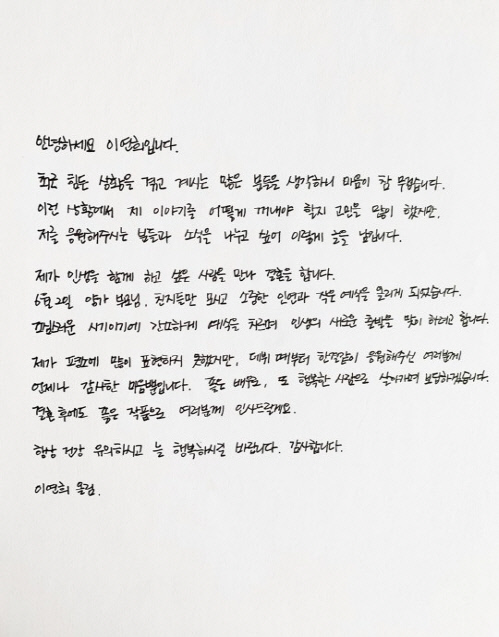 안녕하세요 이연희입니다.
최근 힘든 상황을 겪고 계시는 많은 분들을 생각하니 마음이 참 무겁습니다.
이런 상황에서 제 이야기를 어떻게 꺼내야 할지 고민을 많이 했지만,
저를 응원해주시는 분들과 소식을 나누고 싶어 이렇게 글을 남깁니다.
제가 인생을 함께 하고 싶은 사람을 만나 결혼을 합니다.
6월 2일 양가 부모님, 친지들만 모시고 소중한 인연과 작은 예식을 올리게 되었습니다.
조심스러운 시기이기에 간소하게 예식을 치르며 인생의 새로운 출발을 맞이 하려고 합니다.
제가 평소에 많이 표현하지 못했지만, 데뷔 때부터 한결같이 응원해주신 여러분께
언제나 감사한 마음뿐입니다. 좋은 배우로, 또 행복한 사람으로 살아가며 보답하겠습니다.
결혼 후에도 좋은 작품으로 여러분께 인사드릴게요.
항상 건강 유의하시고 늘 행복하시길 바랍니다. 감사합니다.
이연희 올림.